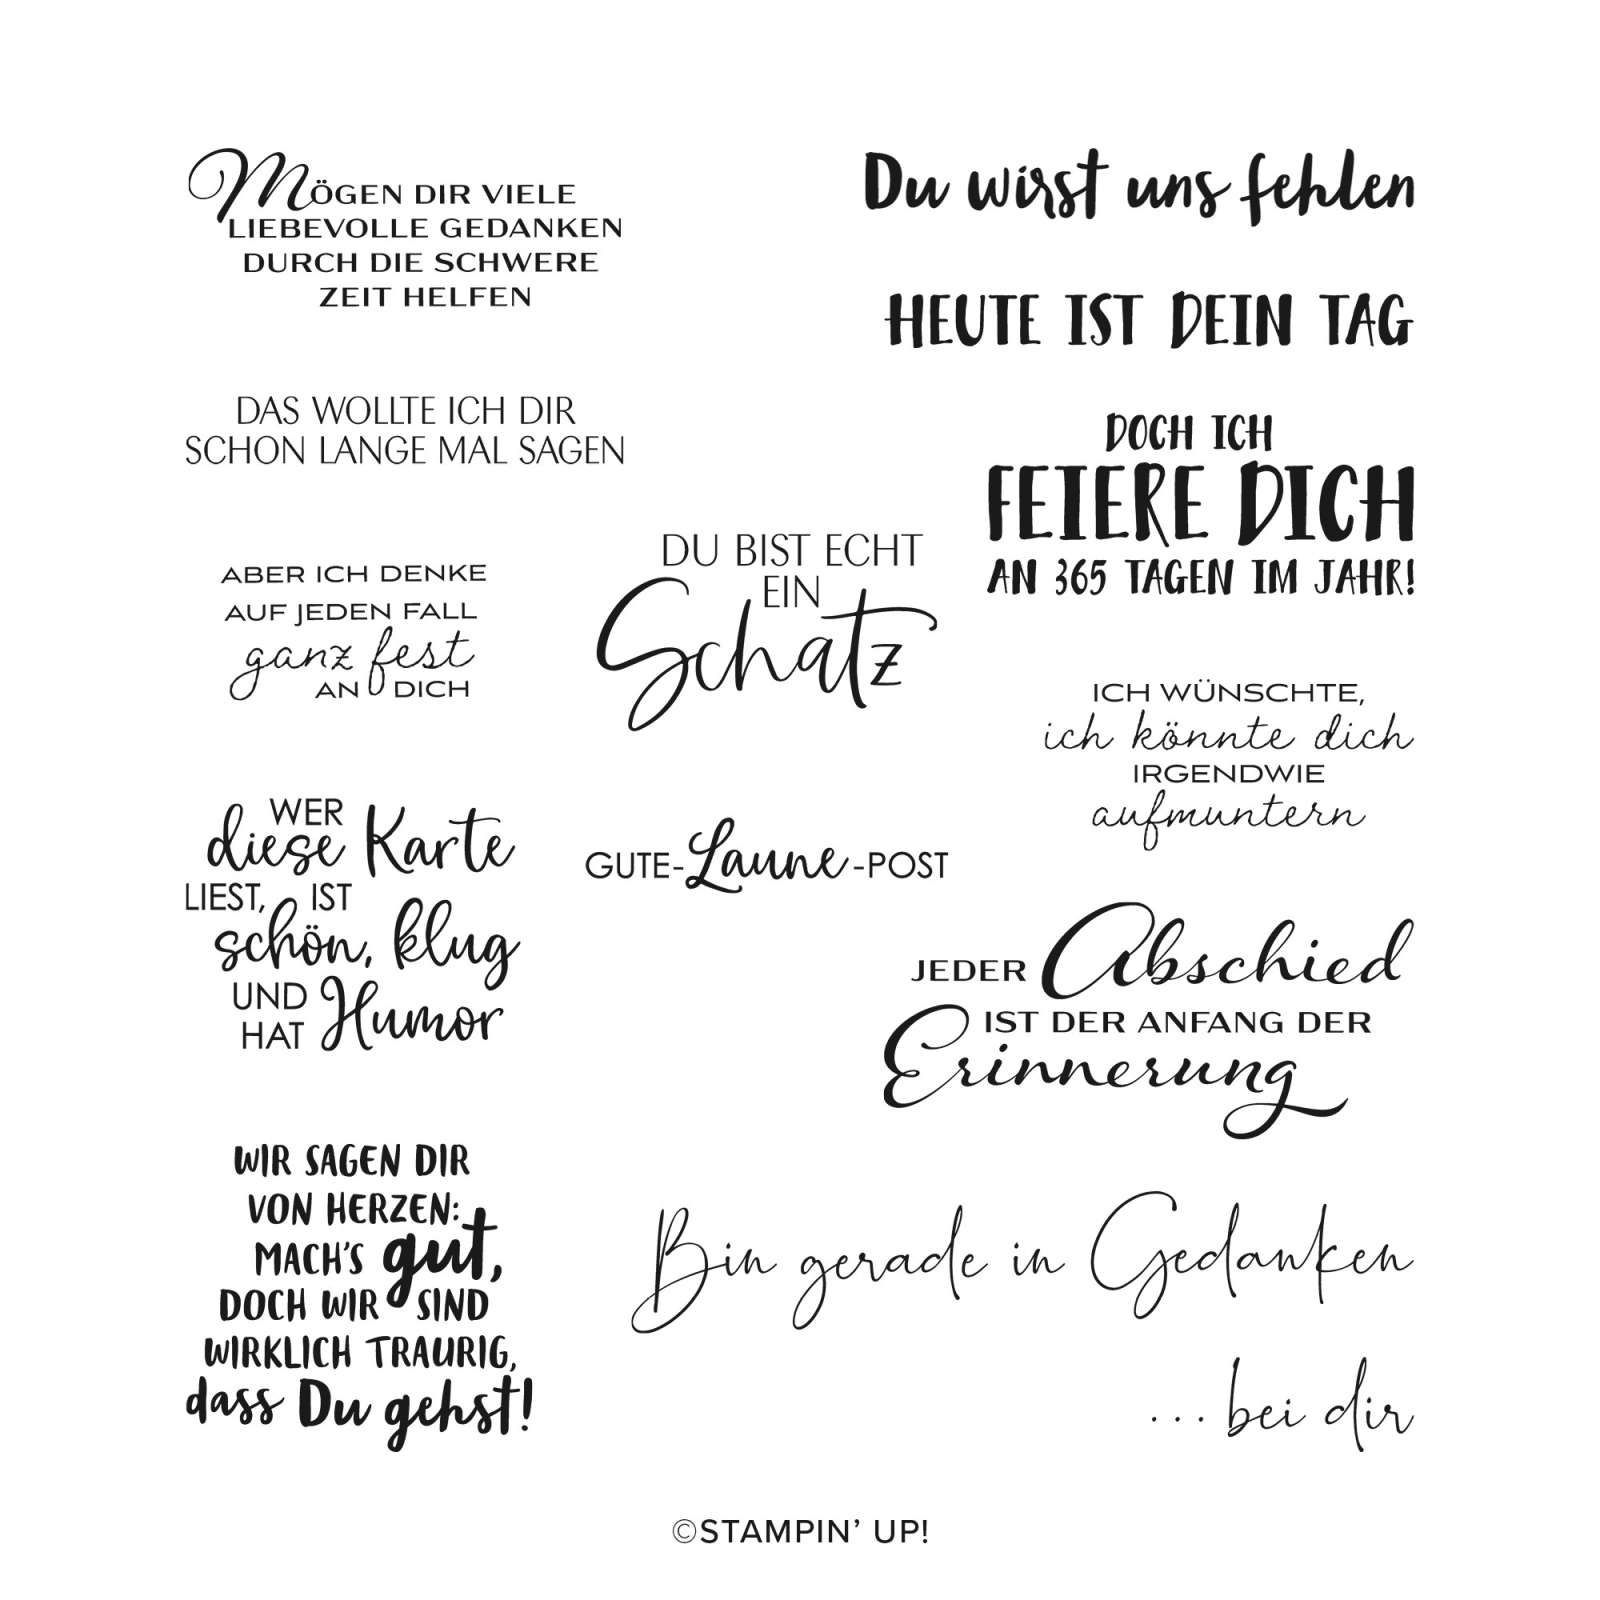 MÖGEN DIR VIELE
LIEBEVOLLE GEDANKEN
DURCH DIE SCHWERE
ZEIT HELFEN
Du wirst uns fehlen
HEUTE IST DEIN TAG
DAS WOLLTE ICH DIR
SCHON LANGE MAL SAGEN
DOCH ICH
FEIERE DICH
AN 365 TAGEN IM JAHR!
ABER ICH DENKE
AUF JEDEN FALL
ganz fest
AN DICH
DU BIST ECHT
EIN
Schatz
ICH WÜNSCHTE,
ich könnte dich
IRGENDWIE
aufmuntern
WER
diese Karte
LIEST, IST
schön, klug
UND
HAT Humor
GUTE-Laune-POST
JEDER Abschied
IST DER ANFANG DER
Erinnerung
WIR SAGEN DIR
VON HERZEN:
MACH'S gut,
DOCH WIR SIND
WIRKLICH TRAURIG,
dass Du gehst!
Bin gerade in Gedanken
... bei dir
©STAMPIN' UP!